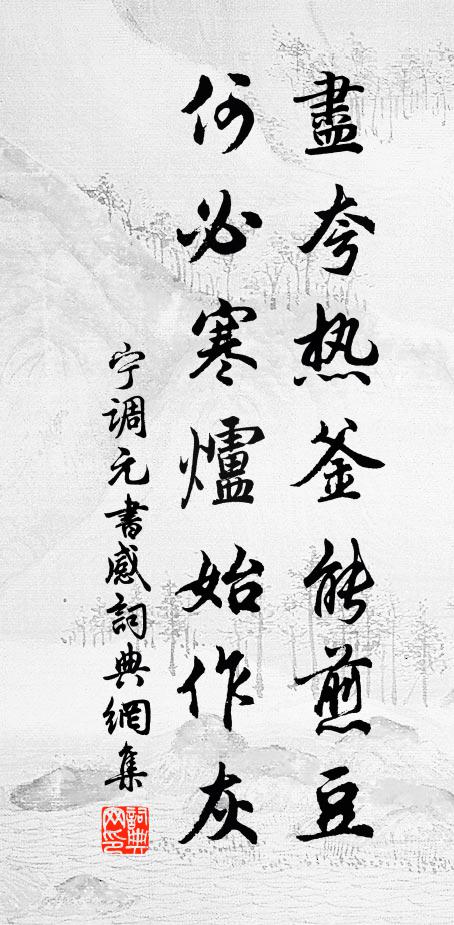 盡夸热釜能煎豆
何必寒爐始作灰
宁调元書感詞典網集
詞典網印